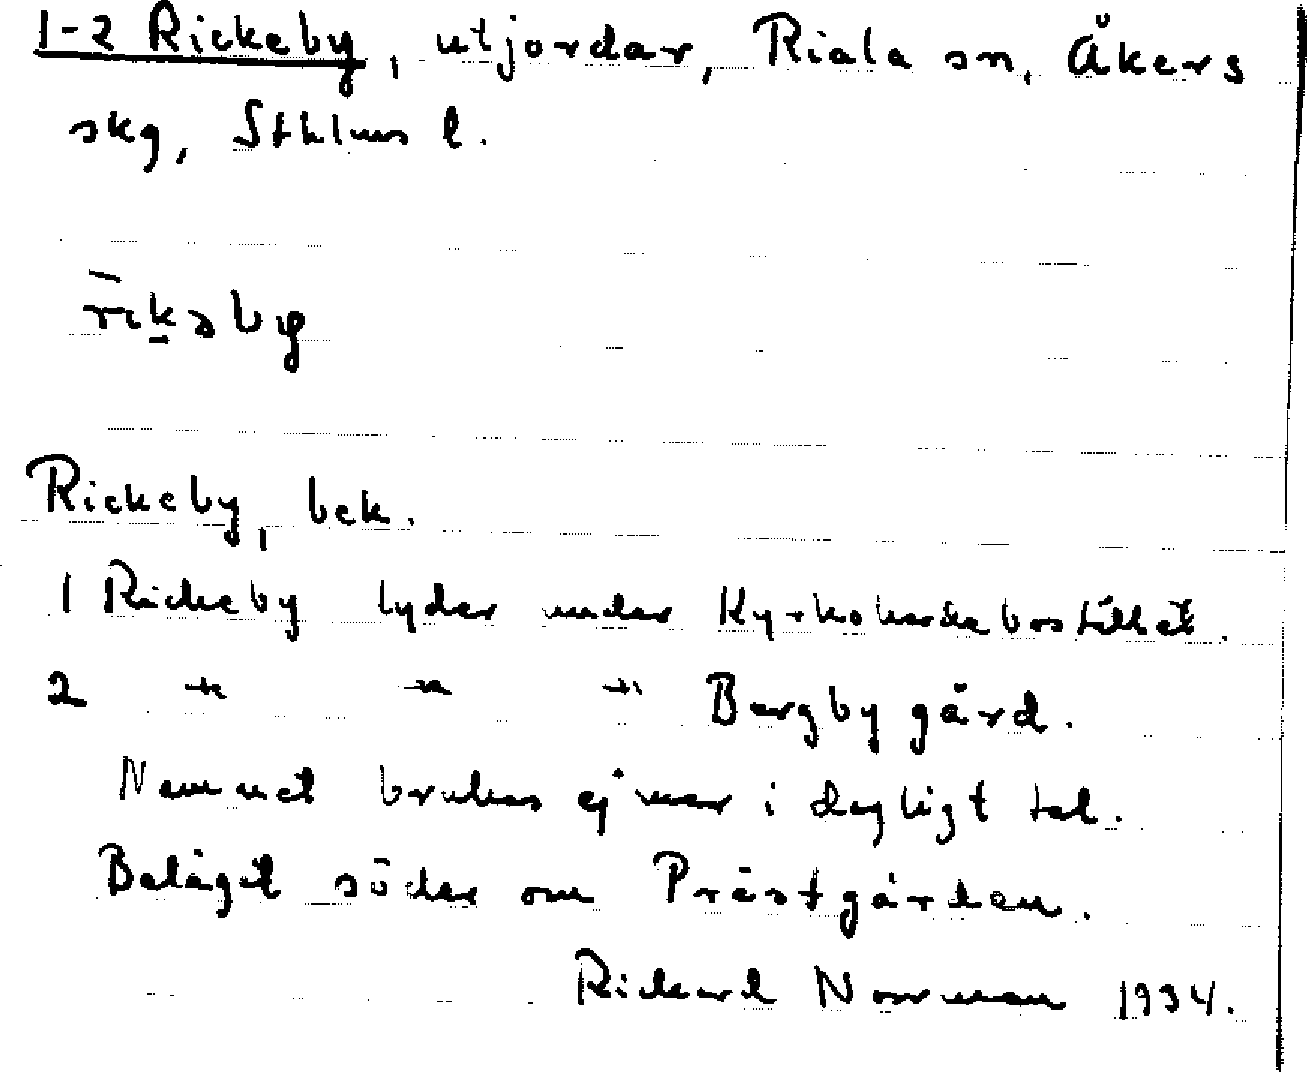 1-2 Rickeby, utjordar, Riala sn, Åkers
skg, Sthlms l.
Rickeby, bek.
1 Rickeby lyder under Kyrkoherdebostället.
2 -"- -"- -"- Bergby gård.
Namnet brukas ej mer i dagligt tal.
Beläget söder om Prästgården.
Rickard Norrman 1934.